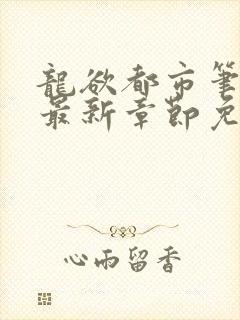 龍欲都市筆
最新章節免
心雨留香